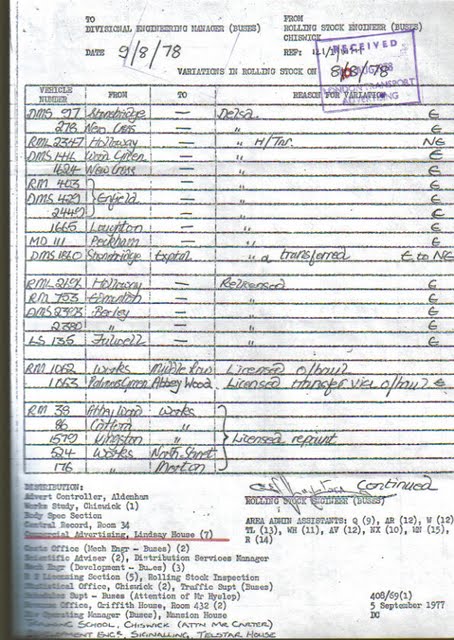 TO
DIVISIONAL ENGINEERING MANAGER (BUSES)
FROM
ROLLING STOCK ENGINEER (BUSES)
CHISWICK
DATE 9/8/78
REF:
RECEIVED
LONDON TRANSPORT
ADVERTISING
VARIATIONS IN ROLLING STOCK ON 8/8/78
VEHICLE NUMBER FROM TO REASON FOR VARIATION
DMS 97 Stonebridge — Delsd. E
278 New Cross — " E
RML 2347 Holloway — " H/Tnr. NE
DMS 446 Wood Green — " E
1624 New Cross — " E
RM 403 } — " E
DMS 429 } Enfield — " E
2449 } — " E
1665 Loughton — " E
MD 111 Peckham — " E
DMS 1860 Stonebridge Exptal " & transferred E to NE
RML Holloway — Relicensed E
RM 753 Edmonton — " E
DMS Bexley — " E
2380 " — " E
LS 135 Fulwell — " E
RM 1062 Works Middle Row Licensed o/haul E
1063 Palmers Green Abbey Wood Licensed transfer vice o/haul E
RM 38 Abbey Wood Works
86 Catford "
1579 Kingston " } Licensed repaint
524 Works North Street
176 " Merton
Continued
DISTRIBUTION:
Advert Controller, Aldenham
Works Study, Chiswick (1)
Body Spec Section
Central Record, Room 34
Commercial Advertising, Lindsay House (7)
Costs Office (Mech Engr - Buses) (2)
Scientific Adviser (2), Distribution Services Manager
Mech Engr (Development - Buses) (3)
Licensing Section (5), Rolling Stock Inspection
Statistical Office, Chiswick (2), Traffic Supt (Buses)
Schedules Supt - Buses (Attention of Mr Hyslop)
Revenue Office, Griffith House, Room 432 (2)
Operating Manager (Buses), Mansion House
TRAINING SCHOOL, CHISWICK (ATTN MR CARTER)
DEVELOPMENT ENGR. SIGNALLING, TELSTAR HOUSE
ROLLING STOCK ENGINEER (BUSES)
AREA ADMIN ASSISTANTS: Q (9), AR (12), W (12)
TL (13), WH (11), AV (12), NX (10), WN (15),
R (14)
408/69(1)
5 September 1977
DC